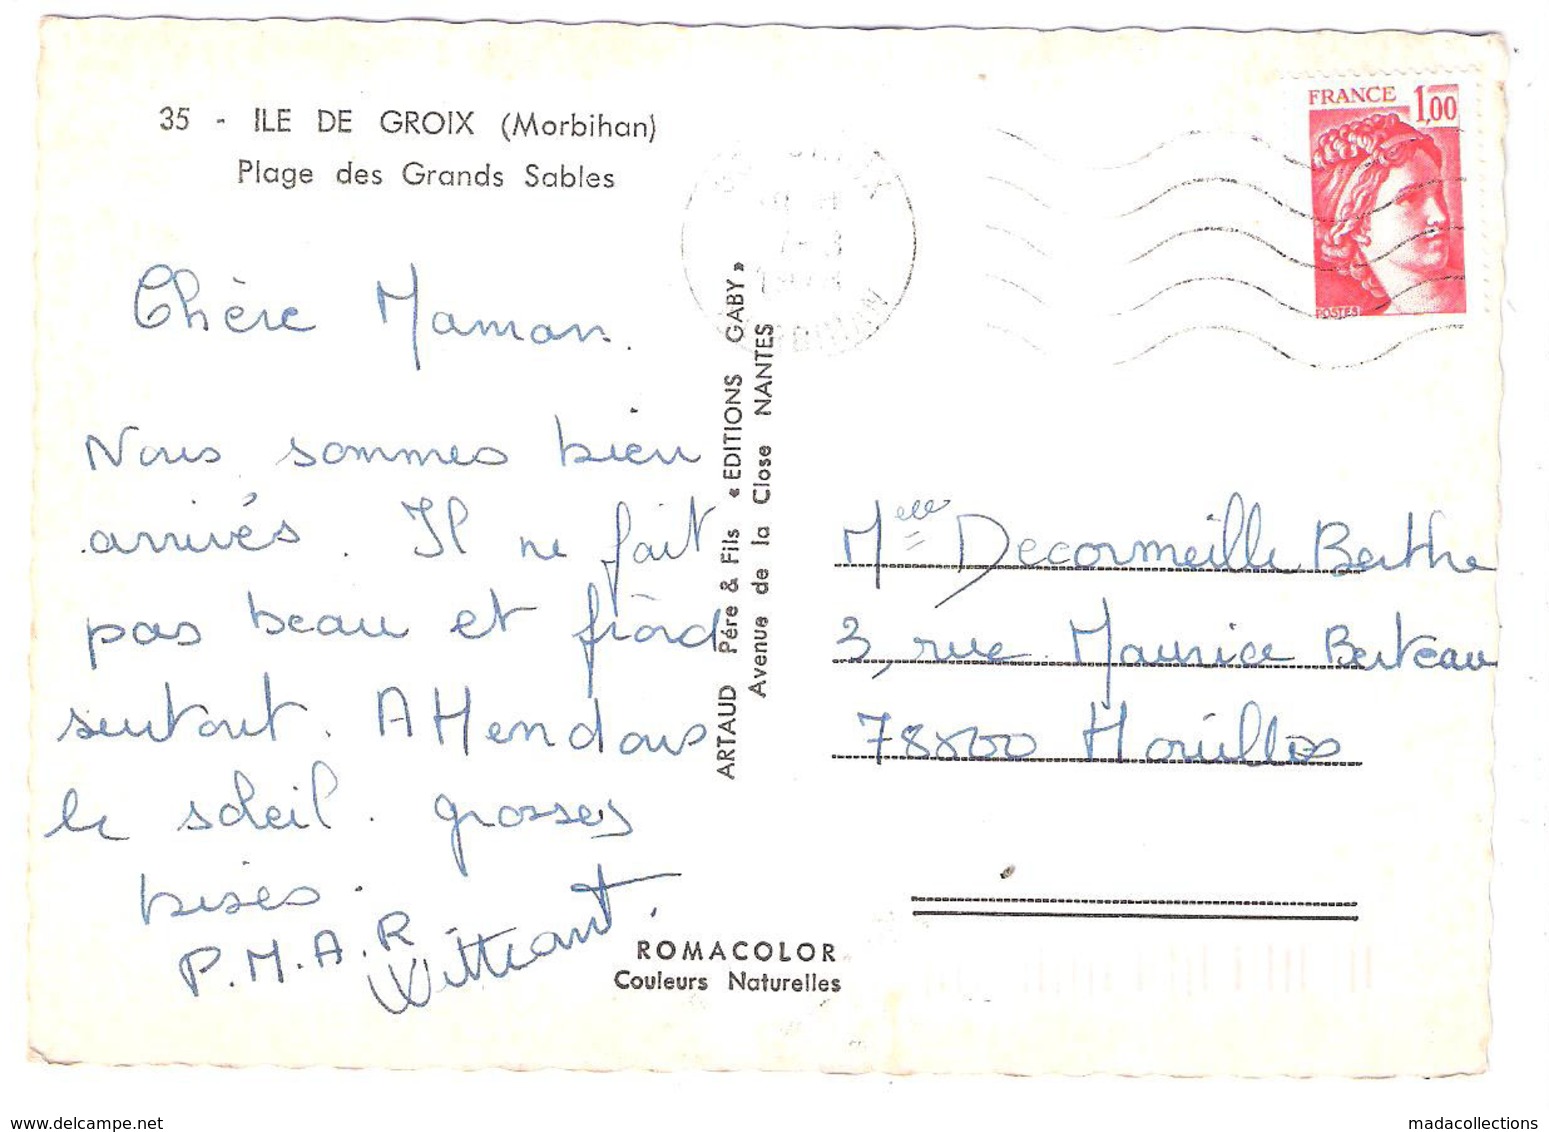 35 - ILE DE GROIX (Morbihan)
Plage des Grands Sables
Chère Maman.
Nous sommes bien
arrivés. Il ne fait
pas beau et froid
surtout. Attendons
le soleil. grosses
bises.
P.M.A.R
Wittrant.
ARTAUD Père & Fils « EDITIONS GABY »
Avenue de la Close NANTES
ROMACOLOR
Couleurs Naturelles
FRANCE 1,00
POSTES
Melle Decormeille Berthe
3, rue Maurice Berteau
78800 Houilles
www.delcampe.net
madacollections